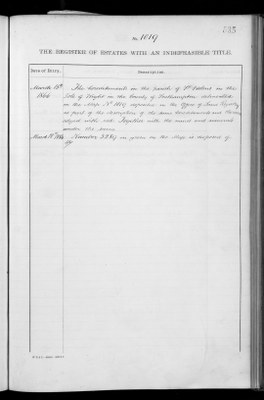 335
No. 1019
THE REGISTER OF ESTATES WITH AN INDEFEASIBLE TITLE.
Date of Entry.
Description.
March 13th The hereditaments in the parish of St Helens in the
1866 Isle of Wight in the County of Southampton delineated
on the Map No 1019 deposited in the Office of Land Registry
as part of the description of the same hereditaments and thereon
edged with red Together with the mines and minerals
under the same
on the Map is disposed of